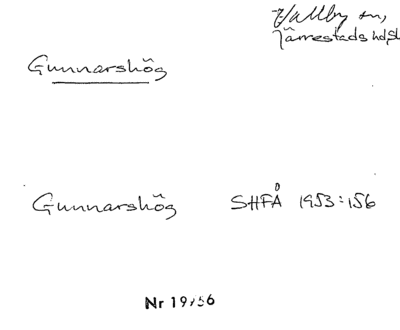 Vallby sn,
Järrestads hd, Sk
Gunnarshög
Gunnarshög SHFÅ 1953:156
Nr 19/56